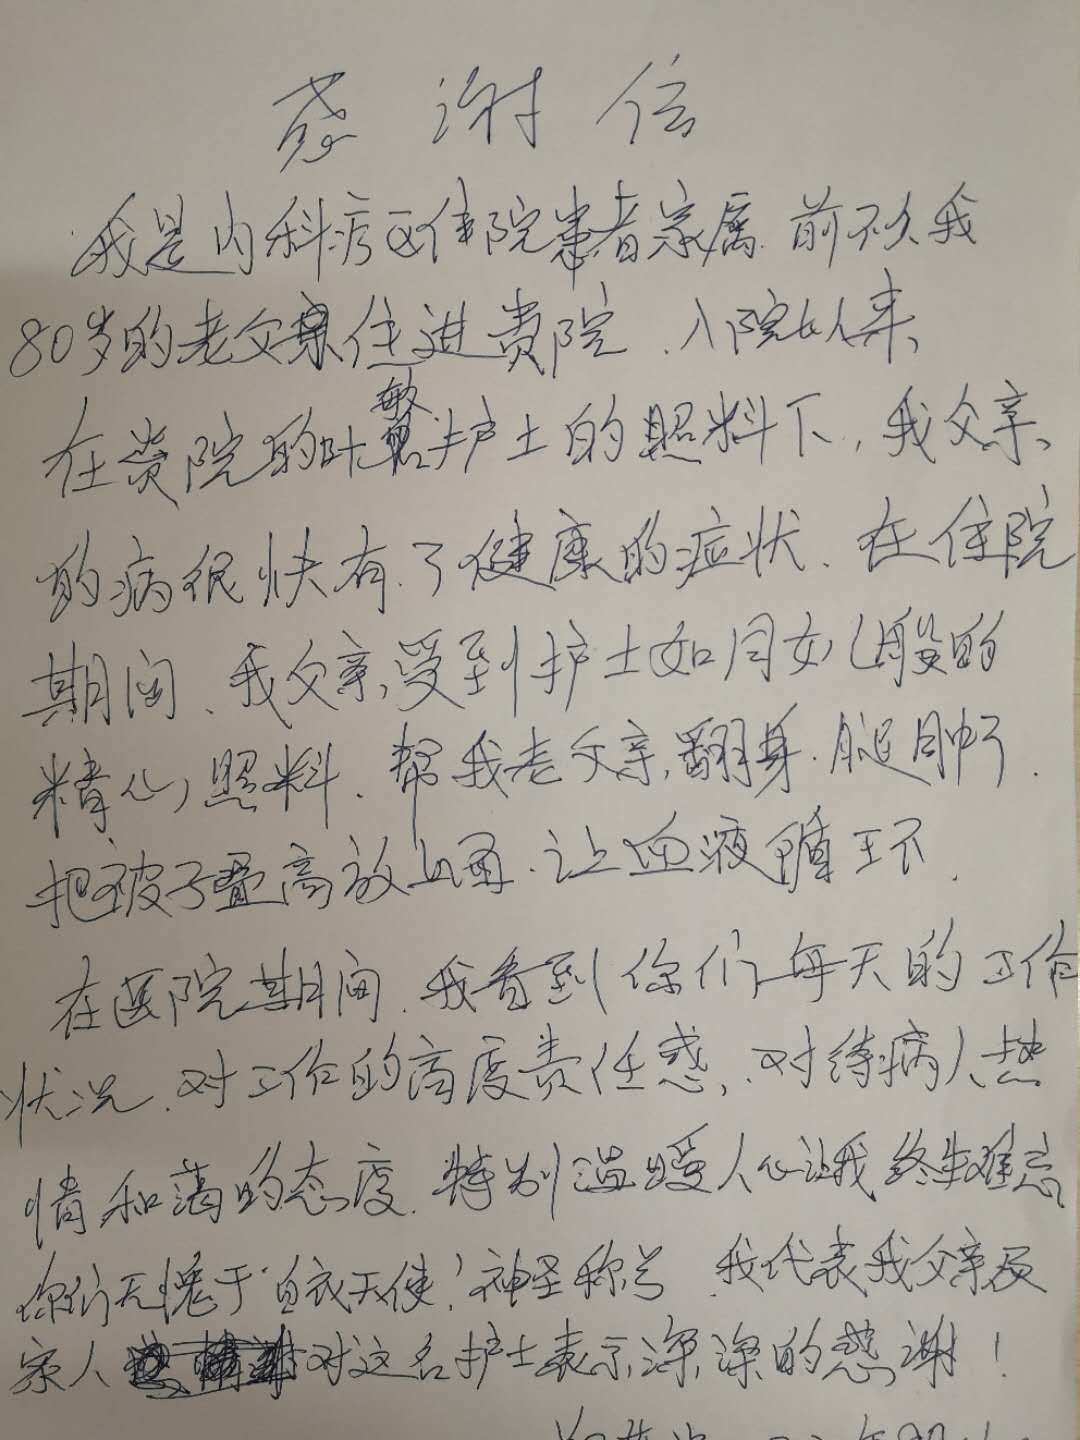 感谢信
我是内科病区住院患者家属.前不久我
80岁的老父亲住进贵院、入院以来、
在贵院的叶敏护士的照料下，我父亲、
的病很快有了健康的症状、在住院
期间、我父亲受到护士如同女儿般的
精心照料、帮我老父亲翻身.腿肿了.
把被子叠高放上面.让血液循环.
在医院期间.我看到你们每天的工作
状况、对工作的高度责任感、对待病人热
情和蔼的态度.特别温暖人心让我终生难忘
你们无愧于"白衣天使"神圣称号.我代表我父亲及
家人对这名护士表示深深的感谢！